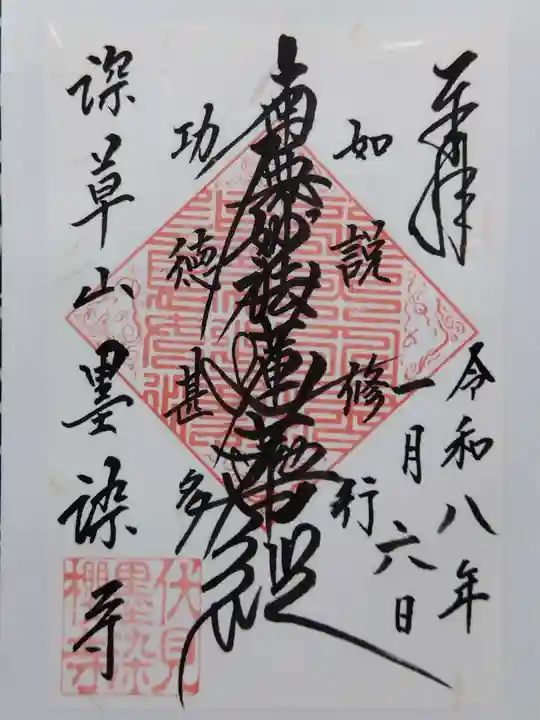 奉拝
令和八年
一月六日
如説修行
南無妙法蓮華経
功徳甚多
深草山墨染寺
伏見
墨染
櫻寺